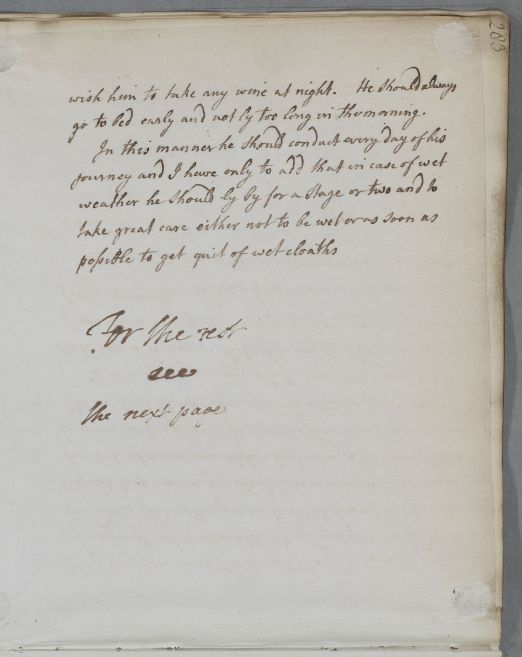 283
wish him to take any wine at night. He should always
go to bed early and not ly too long in the morning.
In this manner he should conduct every day of his
journey and I have only to add that in case of wet
weather he should ly by for a Stage or two and to
take great care either not to be wet or as soon as
possible to get quit of wet cloaths
For the rest
see
the next page